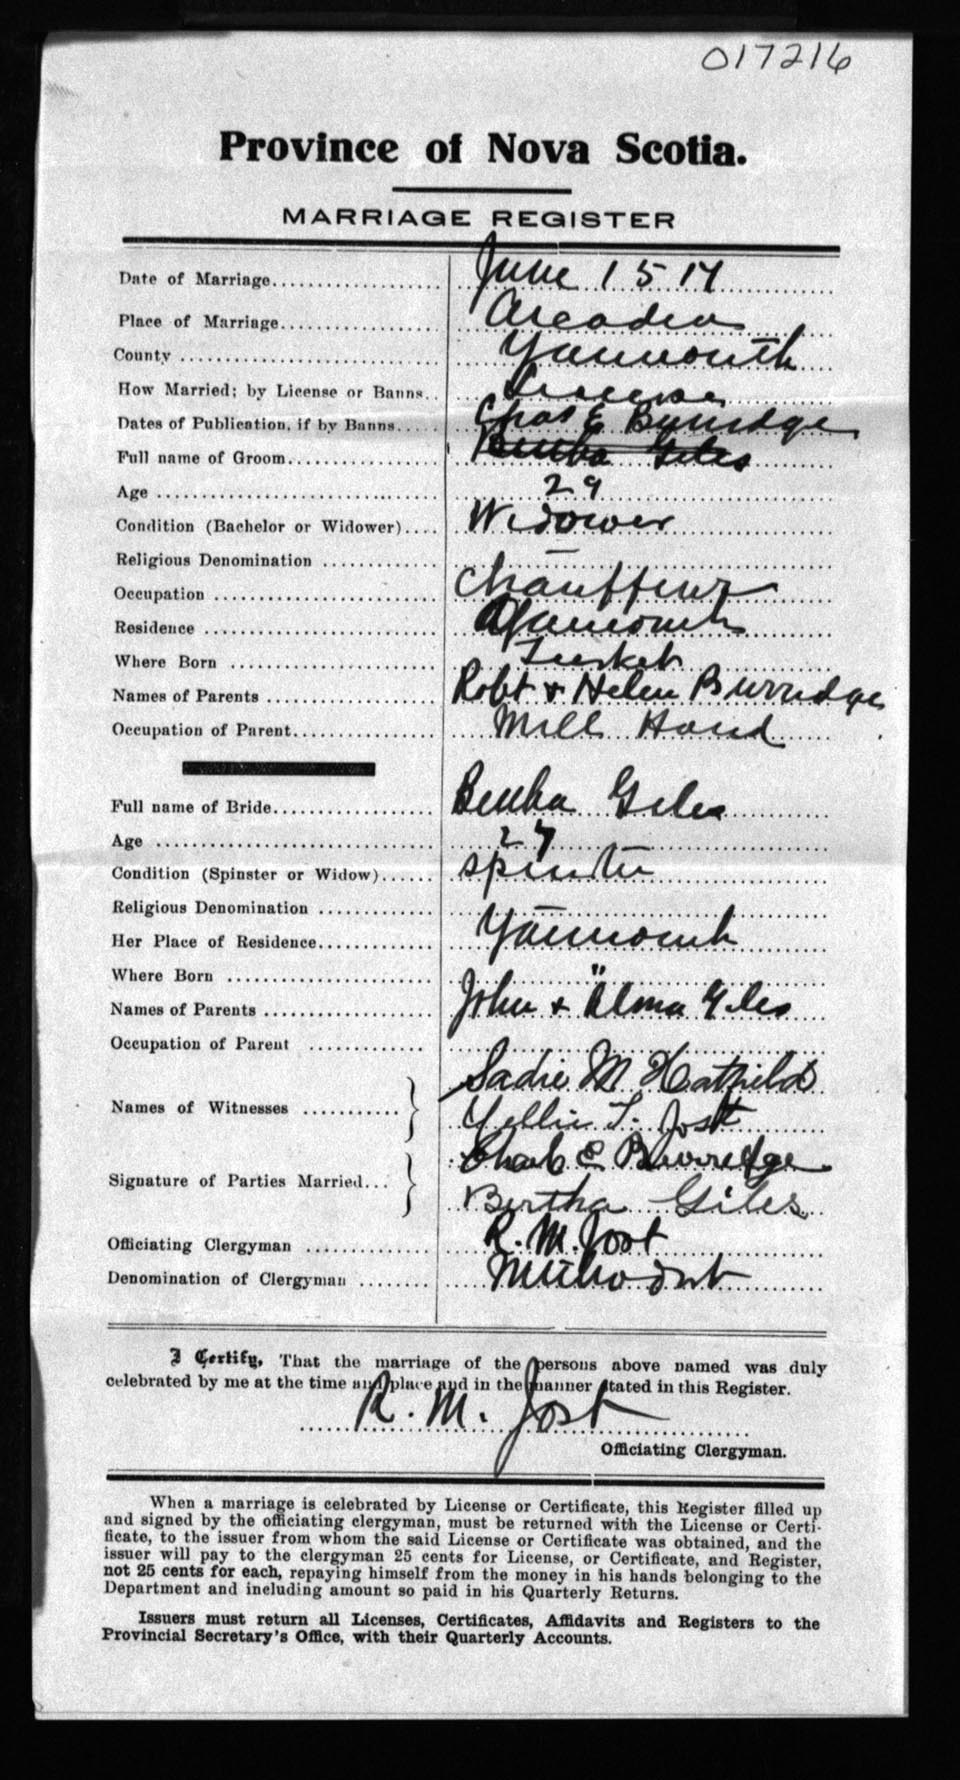 017216
Province of Nova Scotia.
MARRIAGE REGISTER
Date of Marriage.................... June 15 17
Place of Marriage................... Arcadia
County .............................. Yarmouth
How Married; by License or Banns.. License
Dates of Publication, if by Banns..... Chas E Burridge
Full name of Groom.................. Bertha Giles
Age ................................. 29
Condition (Bachelor or Widower).... Widower
Religious Denomination ............. —
Occupation .......................... Chauffeur
Residence ........................... Yarmouth
Where Born ........................ Tusket
Names of Parents ................... Robt & Helen Burridge
Occupation of Parent................ Mill Hand
Full name of Bride................... Bertha Giles
Age ................................. 27
Condition (Spinster or Widow)...... Spinster
Religious Denomination ............. —
Her Place of Residence.............. Yarmouth
Where Born ........................ "
Names of Parents ................... John & Alma Giles
Occupation of Parent .............
Names of Witnesses ........... } Sadie M Hatfield
L. Jost
Signature of Parties Married... } Chas E Burridge
Bertha Giles
Officiating Clergyman .............. R. M. Jost
Denomination of Clergyman ........ Methodist
I Certify, That the marriage of the persons above named was duly
celebrated by me at the time and place and in the manner stated in this Register.
R. M. Jost
Officiating Clergyman.
When a marriage is celebrated by License or Certificate, this Register filled up
and signed by the officiating clergyman, must be returned with the License or Certi-
ficate, to the issuer from whom the said License or Certificate was obtained, and the
issuer will pay to the clergyman 25 cents for License, or Certificate, and Register,
not 25 cents for each, repaying himself from the money in his hands belonging to the
Department and including amount so paid in his Quarterly Returns.
Issuers must return all Licenses, Certificates, Affidavits and Registers to the
Provincial Secretary's Office, with their Quarterly Accounts.